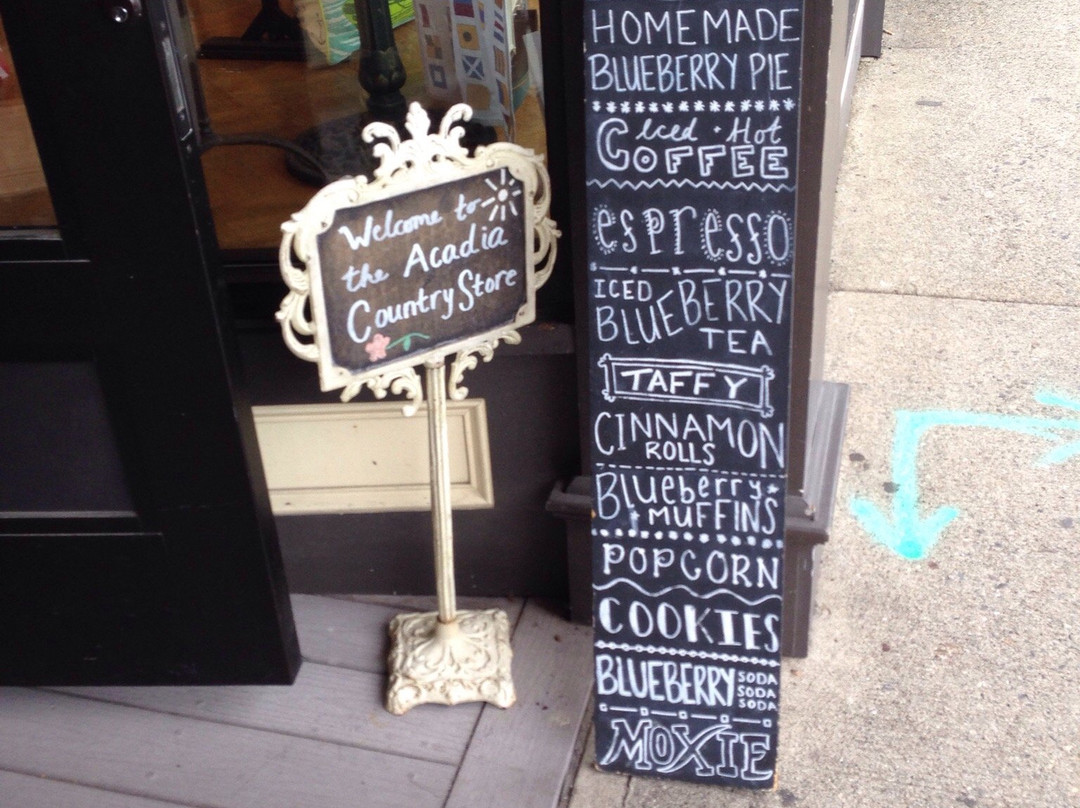 Welcome to
the Acadia
Country Store
HOMEMADE
BLUEBERRY PIE
Iced · Hot
COFFEE
espresso
ICED
BLUEBERRY
TEA
TAFFY
CINNAMON
ROLLS
Blueberry
MUFFINS
POPCORN
COOKIES
BLUEBERRY SODA
SODA
SODA
MOXIE